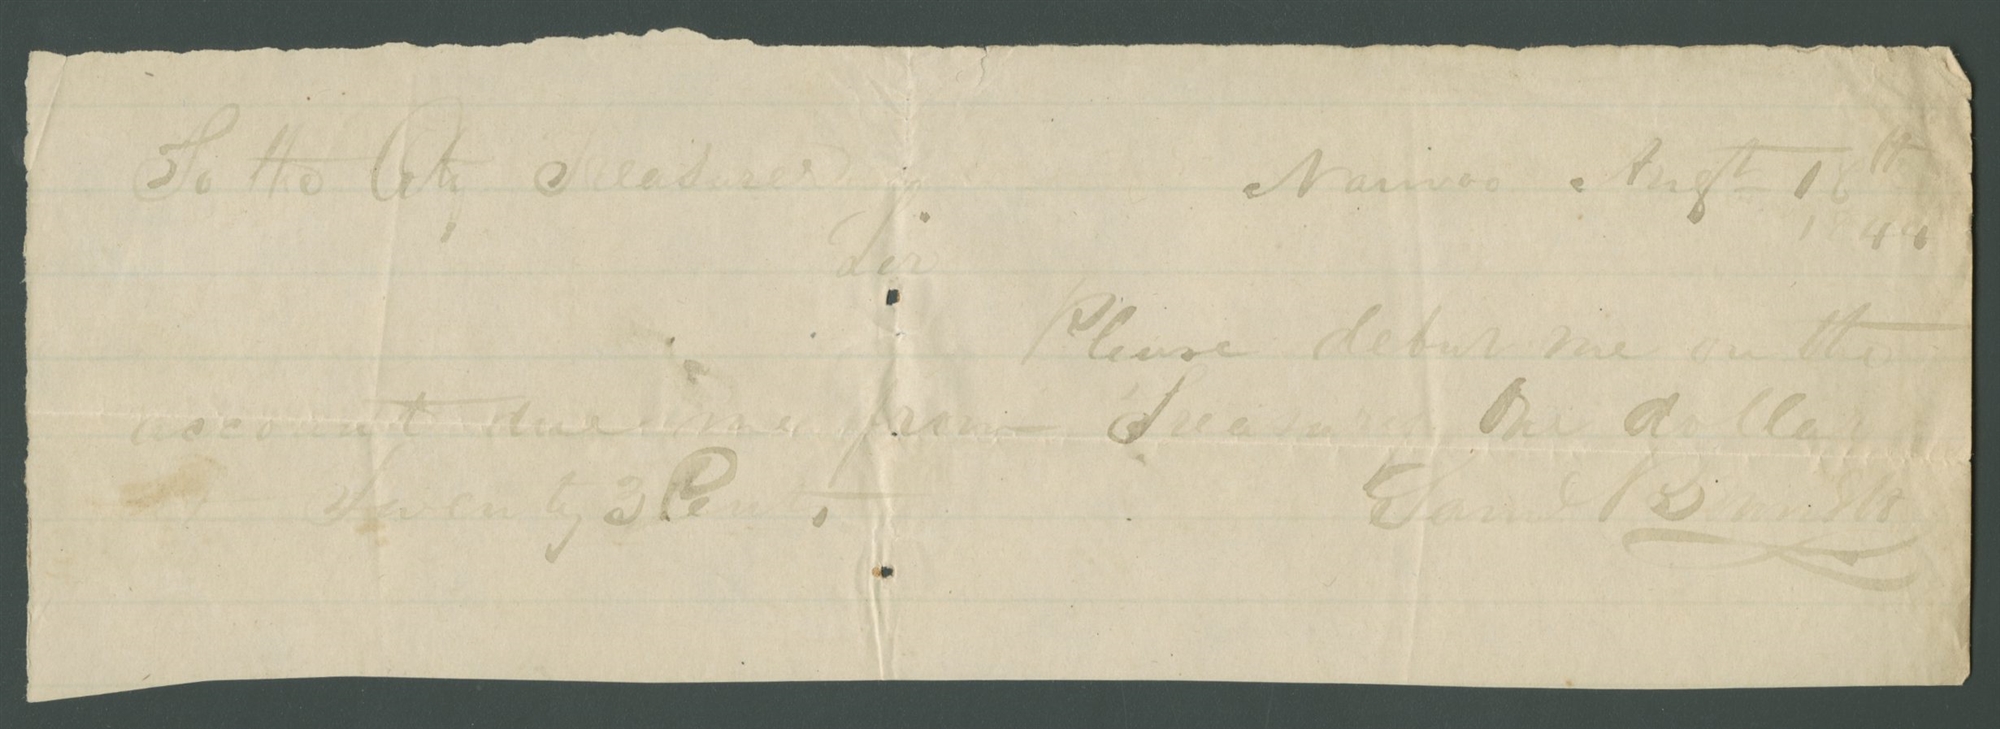 To the City Treasurer Nauvoo Augst 18th
1844
Sir
Please debur me on the
account due me from Treasurer One dollar
Seventy 3 Cents Saml Bennett